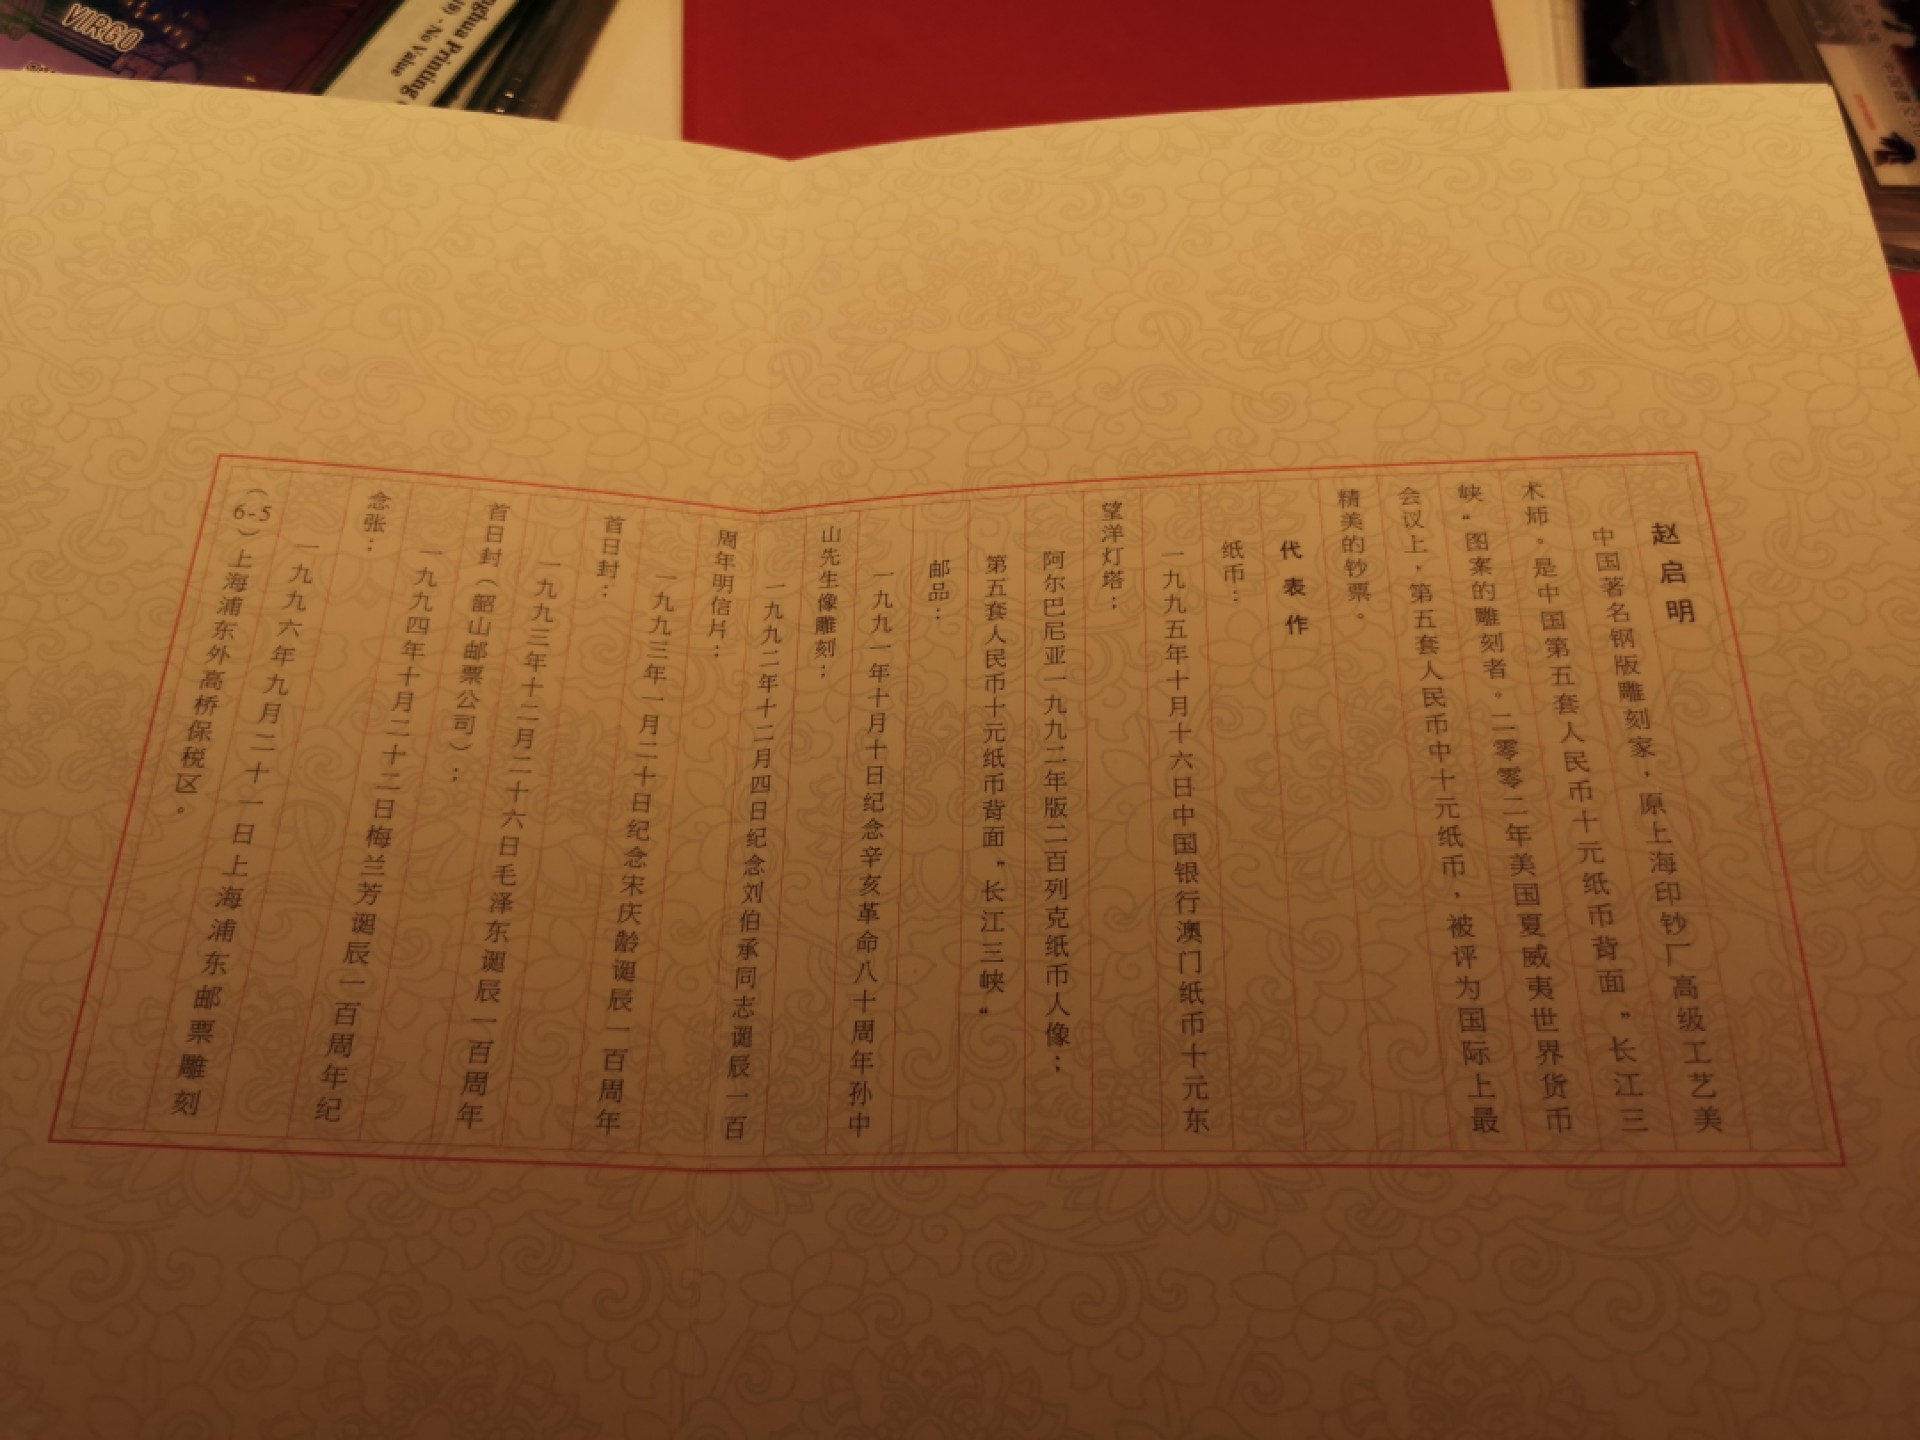 VIRGO
nghua Printing
- No Value
赵启明
中国著名钢版雕刻家，原上海印钞厂高级工艺美
术师。是中国第五套人民币十元纸币背面“长江三
峡“图案的雕刻者。二零零二年美国夏威夷世界货币
会议上，第五套人民币中十元纸币，被评为国际上最
精美的钞票。
代表作
纸币：
一九九五年十月十六日中国银行澳门纸币十元东
望洋灯塔；
阿尔巴尼亚一九九二年版二百列克纸币人像；
第五套人民币十元纸币背面“长江三峡“
邮品：
一九九一年十月十日纪念辛亥革命八十周年孙中
山先生像雕刻；
一九九二年十二月四日纪念刘伯承同志诞辰一百
周年明信片；
一九九三年一月二十日纪念宋庆龄诞辰一百周年
首日封；
一九九三年十二月二十六日毛泽东诞辰一百周年
首日封（韶山邮票公司）；
一九九四年十月二十二日梅兰芳诞辰一百周年纪
念张；
一九九六年九月二十一日上海浦东邮票雕刻
（6-5）上海浦东外高桥保税区。